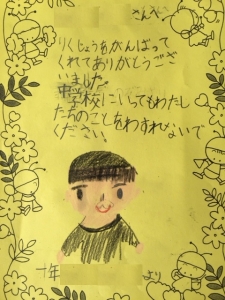 さんへ
りくじょうをがんばって
くれてありがとうござ
いました。
中学校にいってもわたし
たちのことをわすれないで
ください。
一年
より